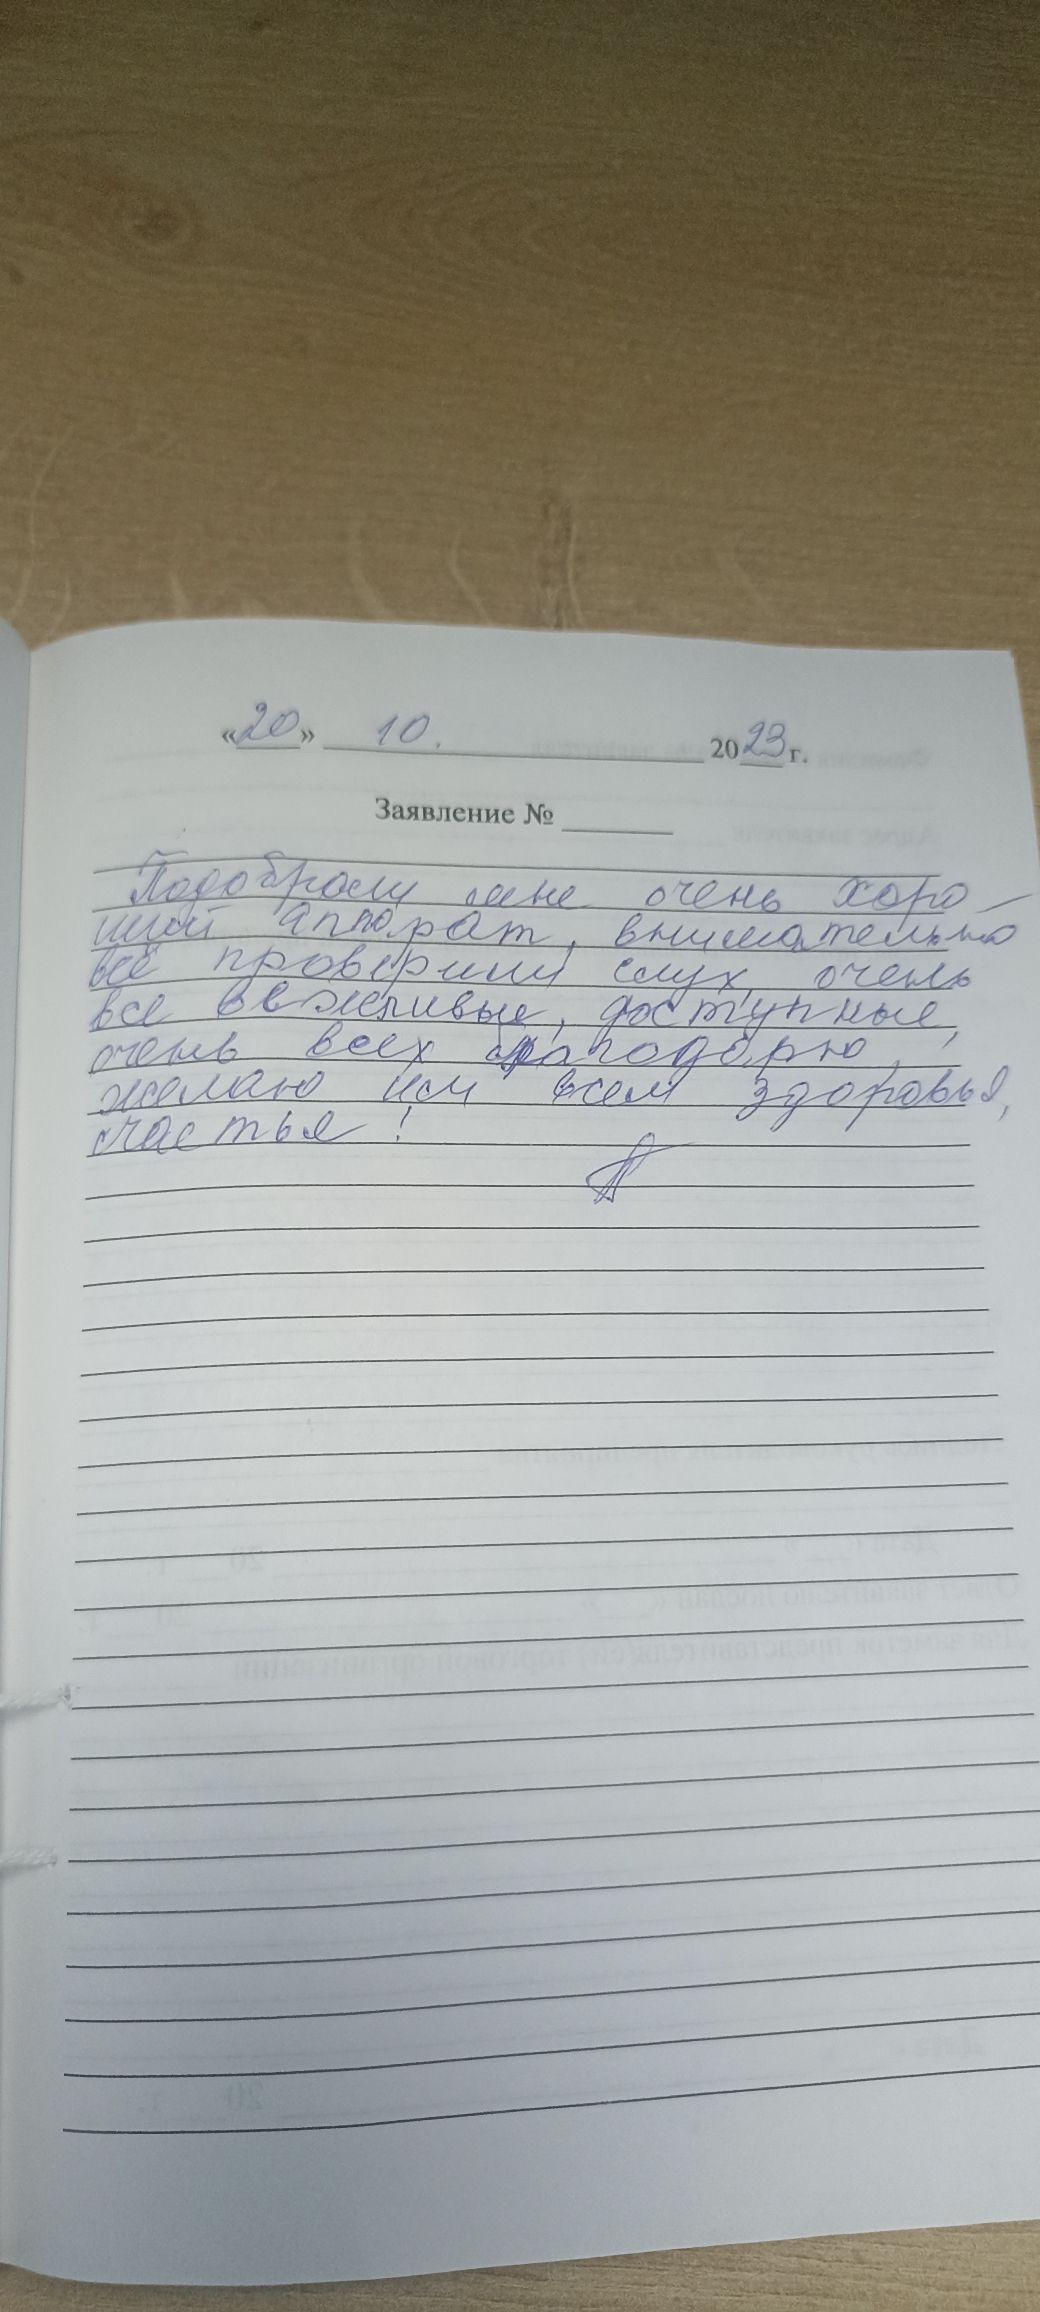 «20» 10. 2023 г.
Заявление № 
Подобрали мне очень хоро-
ший аппарат, внимательно
всё проверили слух, очень
все вежливые, доступные,
очень всех благодарю,
желаю им всем здоровья,
счастья!